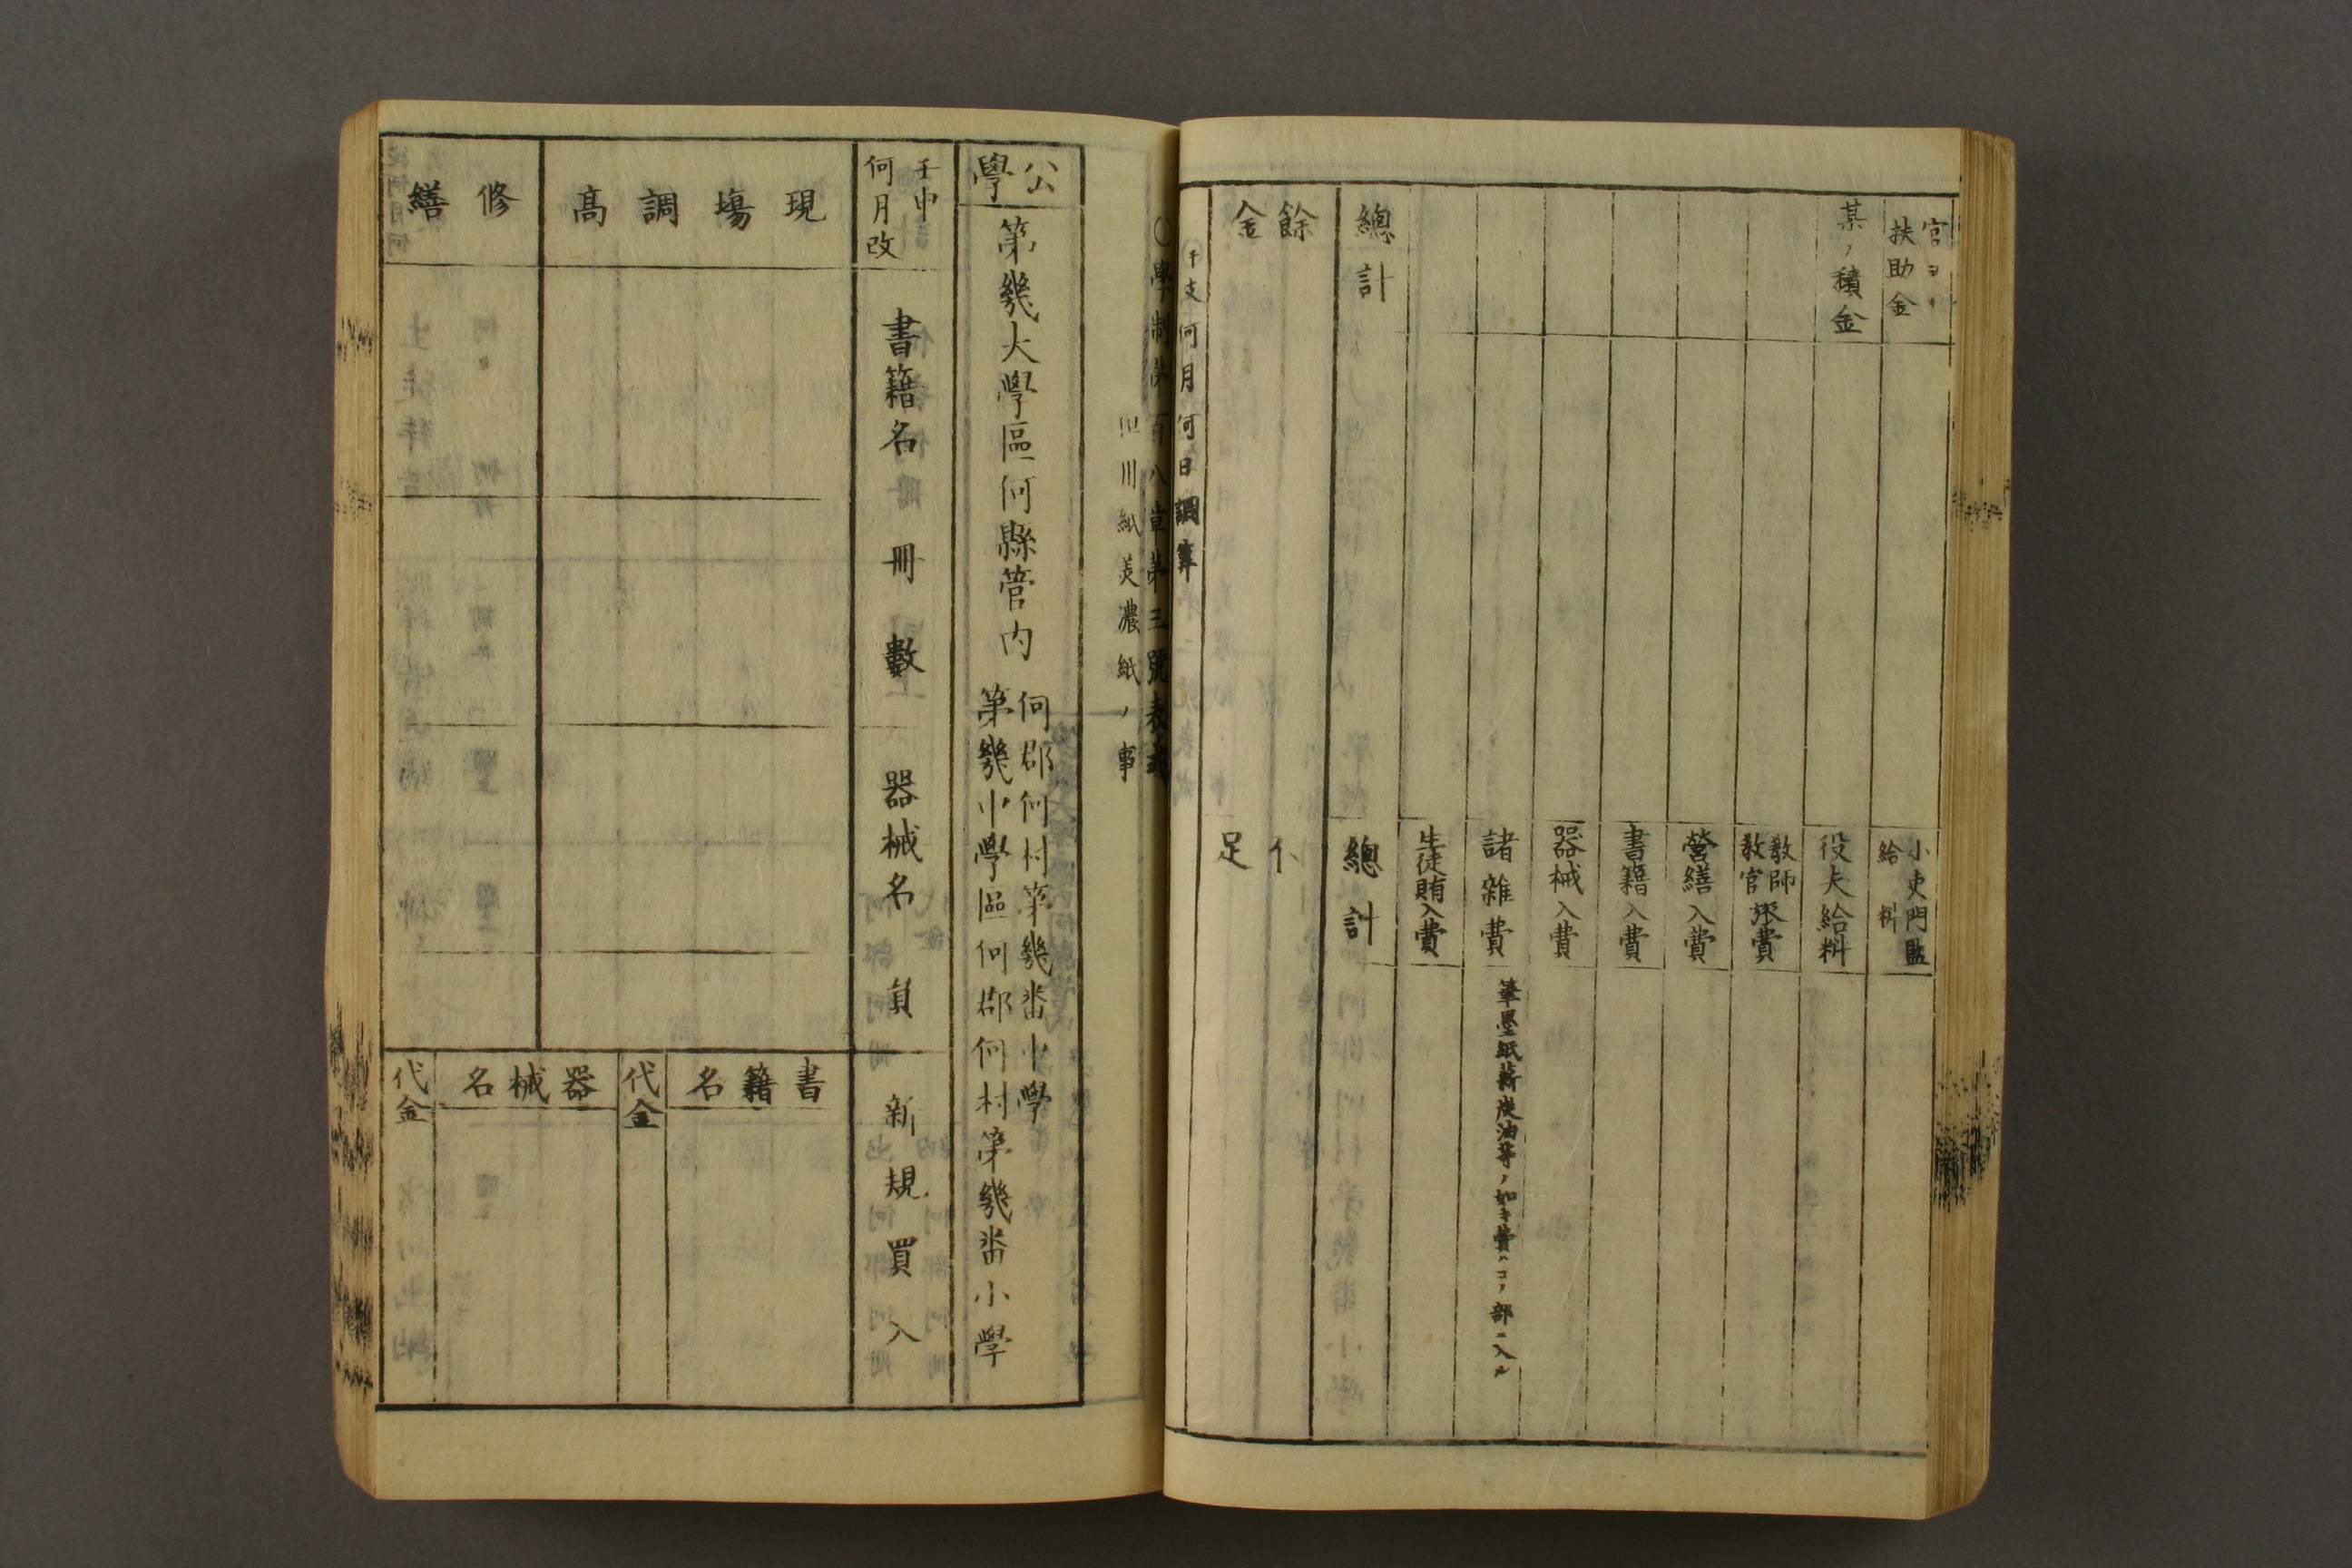 官ヨリ
扶助金
某ノ積金
總計
餘金
小吏門監
給料
役夫給料
教師
教官旅費
營繕入費
書籍入費
器械入費
諸雜費
筆墨紙薪炭油等ノ如キ費ハコノ部ニ入ル
生徒賄入費
總計
不足
干支何月何日調筆
〇學制第百八章第三號表式
但用紙美濃紙ノ事
公學
第幾大學區何縣管内
何郡何村第幾番中學
第幾中學區何郡何村第幾番小學
壬申
何月改
書籍名
冊數
器械名
員
新規買入
現塲調高
修繕
書籍名
代金
器械名
代金